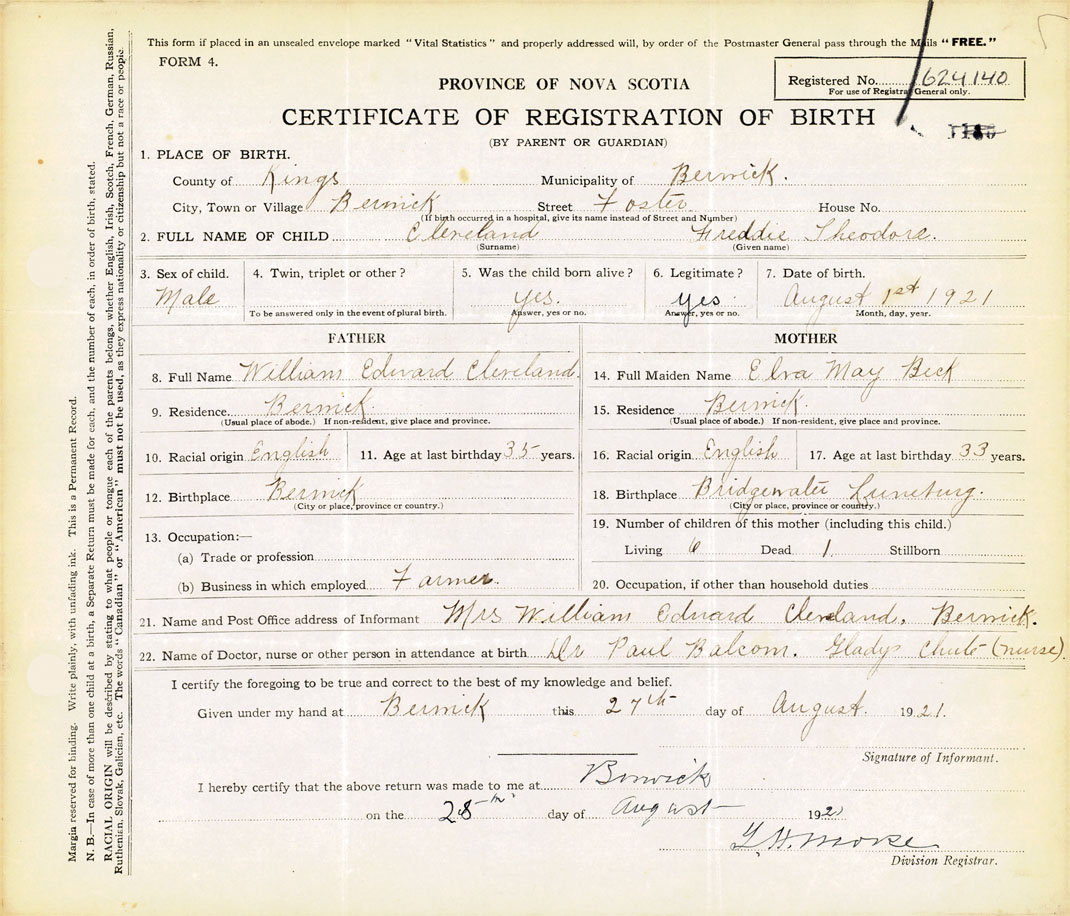 This form if placed in an unsealed envelope marked "Vital Statistics" and properly addressed will, by order of the Postmaster General pass through the Mails "FREE."
FORM 4.
Registered No. 624140
For use of Registrar General only.
PROVINCE OF NOVA SCOTIA
CERTIFICATE OF REGISTRATION OF BIRTH
(BY PARENT OR GUARDIAN)
1. PLACE OF BIRTH.
County of Kings Municipality of Berwick.
City, Town or Village Berwick Street Foster House No.
(If birth occurred in a hospital, give its name instead of Street and Number)
2. FULL NAME OF CHILD Cleveland Freddie Theodore.
(Surname) (Given name)
3. Sex of child. 4. Twin, triplet or other? 5. Was the child born alive? 6. Legitimate? 7. Date of birth.
Male yes. yes August 1st 1921
To be answered only in the event of plural birth. Answer, yes or no. Answer, yes or no. Month, day, year.
FATHER MOTHER
8. Full Name William Edward Cleveland. 14. Full Maiden Name Elva May Beck
9. Residence. Berwick. 15. Residence Berwick.
(Usual place of abode.) If non-resident, give place and province. (Usual place of abode.) If non-resident, give place and province.
10. Racial origin English 11. Age at last birthday 35 years. 16. Racial origin English 17. Age at last birthday 33 years.
12. Birthplace Berwick 18. Birthplace Bridgewater Lunenburg.
(City or place, province or country.) (City or place, province or country.)
13. Occupation:— 19. Number of children of this mother (including this child.)
(a) Trade or profession Living 6 Dead 1. Stillborn
(b) Business in which employed Farmer. 20. Occupation, if other than household duties
21. Name and Post Office address of Informant Mrs William Edward Cleveland, Berwick.
22. Name of Doctor, nurse or other person in attendance at birth Dr Paul Balcom. Gladys Chute (nurse).
I certify the foregoing to be true and correct to the best of my knowledge and belief.
Given under my hand at Berwick this 27th day of August. 1921.
Signature of Informant.
I hereby certify that the above return was made to me at Berwick
on the 28th day of August 1921
Division Registrar.
Margin reserved for binding. Write plainly, with unfading ink. This is a Permanent Record.
N. B.—In case of more than one child at a birth, a Separate Return must be made for each, and the number of each, in order of birth, stated.
RACIAL ORIGIN will be described by stating to what people or tongue each of the parents belongs, whether English, Irish, Scotch, French, German, Russian,
Ruthenian, Slovak, Galician, etc. The words "Canadian" or "American" must not be used, as they express nationality or citizenship but not a race or people.